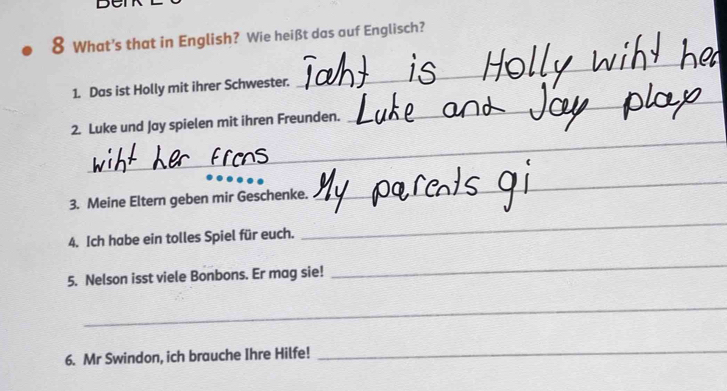 8 What's that in English? Wie heißt das auf Englisch?
1. Das ist Holly mit ihrer Schwester. Taht is Holly wiht her
2. Luke und Jay spielen mit ihren Freunden. Luke and Jay play
wiht her frens
3. Meine Eltern geben mir Geschenke. My parents gi
4. Ich habe ein tolles Spiel für euch.
5. Nelson isst viele Bonbons. Er mag sie!
6. Mr Swindon, ich brauche Ihre Hilfe!